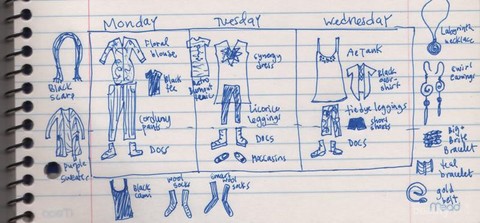 Monday
Tuesday
Wednesday
Floral
blouse
Black
tee
Corduroy
pants
Docs
Retro
synergy
dress
Licorice
leggings
Docs
Moccasins
Ae Tank
Black
over-
shirt
tiedye leggings
show
shorts
Docs
Black
scarf
purple
sweater
Labyrinth
necklace
swirl
earrings
Big
Brite
Bracelet
teal
bracelet
gold
belt
Black
cami
wool
socks
smart
wool
socks
mead